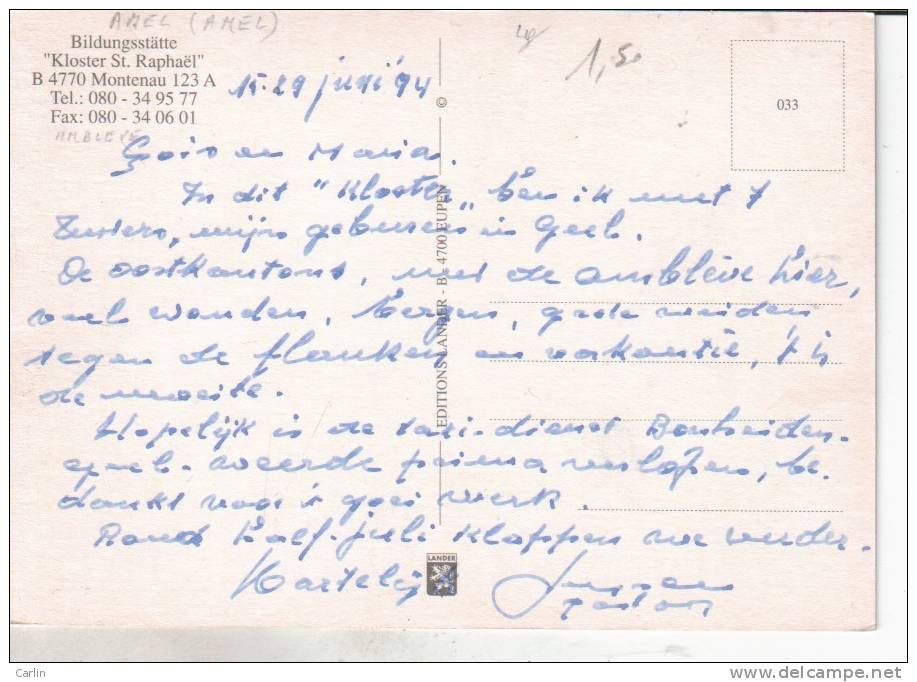 AMEL (AMEL)
Bildungsstätte
"Kloster St. Raphaël"
B 4770 Montenau 123 A
Tel.: 080 - 34 95 77
Fax: 080 - 34 06 01
AMBLEVE
1,50
033
15-29 juni '94
en Maria.
In dit "Kloster„ ben ik met 7
Zusters, mijn geburen in Geel.
De oostkantons, met de amblève hier,
veel wouden, bergen, grote weiden
tegen de flanken en vakantie, 't is
de moeite.
Hopelijk is de taxi-dienst Bonheiden-
geel-weerde prima verlopen, be-
dankt voor 't goei werk.
Rond half-juli kloppen we verder.
Hartelijk
EDITIONS LANDER - B - 4700 EUPEN
©
LANDER
Carlin
www.delcampe.net